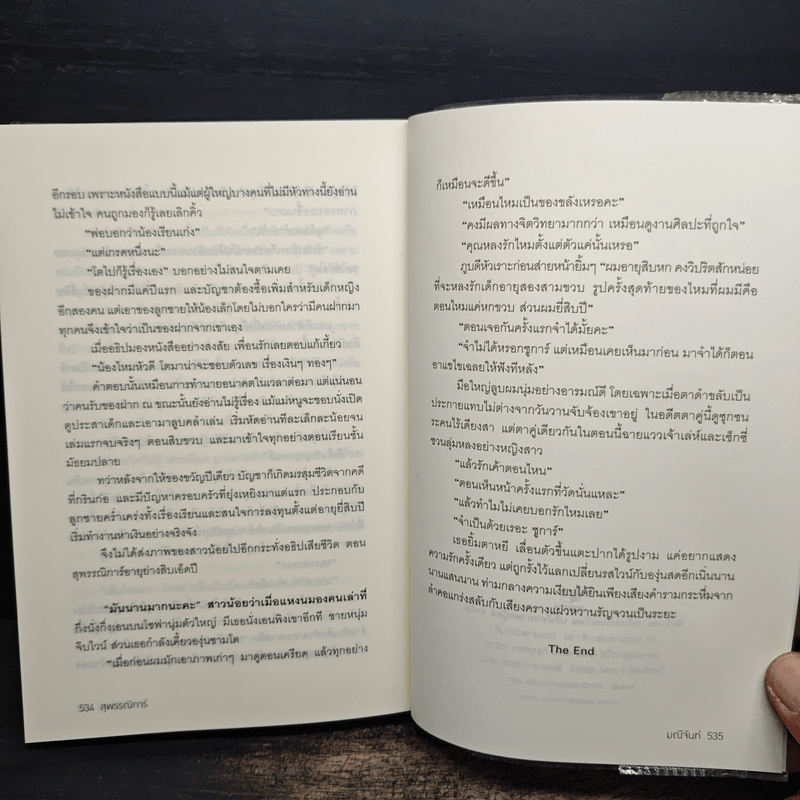 อีกรอบ เพราะหนังสือแบบนี้แม้แต่ผู้ใหญ่บางคนที่ไม่มีหัวทางนี้ยังอ่าน
ไม่เข้าใจ คนถูกมองก็รู้เลยเลิกคิ้ว
“พ่อบอกว่าน้องเรียนเก่ง”
“แต่เกรดหนึ่งนะ”
“โตไปก็รู้เรื่องเอง” บอกอย่างไม่สนใจตามเคย
ของฝากมีแค่ปีแรก และบัญชาต้องซื้อเพิ่มสำหรับเด็กหญิง
อีกสองคน แต่เอาของลูกชายให้น้องเล็กโดยไม่บอกใครว่ามีคนฝากมา
ทุกคนจึงเข้าใจว่าเป็นของฝากจากเขาเอง
เมื่ออธิปมองหนังสืออย่างสงสัย เพื่อนรักเลยตอบแก้เกี้ยว
“น้องไหมหัวดี โตมาน่าจะชอบตัวเลข เรื่องเงินๆ ทองๆ”
คำตอบนั้นเหมือนการทำนายอนาคตในเวลาต่อมา แต่แน่นอน
ว่าคนรับของฝาก ณ ขณะนั้นยังอ่านไม่รู้เรื่อง แม้แม่หนูจะชอบนั่งเปิด
ดูประสาเด็กและเอามาลูบคลำเล่น เริ่มหัดอ่านทีละเล็กละน้อยจน
เล่มแรกจบจริงๆ ตอนสิบขวบ และมาเข้าใจทุกอย่างตอนเรียนชั้น
มัธยมปลาย
ทว่าหลังจากให้ของขวัญปีเดียว บัญชาก็เกิดมรสุมชีวิตจากคดี
ที่กรินก่อ และมีปัญหาครอบครัวที่ยุ่งเหยิงมาแต่แรก ประกอบกับ
ลูกชายคร่ำเคร่งทั้งเรื่องเรียนและสนใจการลงทุนตั้งแต่อายุยี่สิบปี
เริ่มทำงานหาเงินอย่างจริงจัง
จึงไม่ได้ส่งภาพของสาวน้อยไปอีกกระทั่งอธิปเสียชีวิต ตอน
สุพรรณิการ์อายุย่างสิบเอ็ดปี
“มันนานมากนะคะ” สาวน้อยว่าเมื่อแหงนมองคนเล่าที่
กึ่งนั่งกึ่งเอนบนโซฟานุ่มตัวใหญ่ มีเธอนั่งเอนพิงเขาอีกที ชายหนุ่ม
จิบไวน์ ส่วนเธอกำลังเคี้ยวองุ่นชามโต
“เมื่อก่อนผมมักเอาภาพเก่าๆ มาดูตอนเครียด แล้วทุกอย่าง
534 สุพรรณิการ์
ก็เหมือนจะดีขึ้น”
“เหมือนไหมเป็นของขลังเหรอคะ”
“คงมีผลทางจิตวิทยามากกว่า เหมือนดูงานศิลปะที่ถูกใจ”
“คุณหลงรักไหมตั้งแต่ตัวแค่นั้นเหรอ”
ภูบดีหัวเราะก่อนส่ายหน้ายิ้มๆ “ผมอายุสิบหก คงวิปริตสักหน่อย
ที่จะหลงรักเด็กอายุสองสามขวบ รูปครั้งสุดท้ายของไหมที่ผมมีคือ
ตอนไหมแค่หกขวบ ส่วนผมยี่สิบปี”
“ตอนเจอกันครั้งแรกจำได้มั้ยคะ”
“จำไม่ได้หรอกชูการ์ แต่เหมือนเคยเห็นมาก่อน มาจำได้ก็ตอน
อาแขไขเฉลยให้ฟังทีหลัง”
มือใหญ่ลูบผมนุ่มอย่างอารมณ์ดี โดยเฉพาะเมื่อตาดำขลับเป็น
ประกายแทบไม่ต่างจากวันวานจับจ้องเขาอยู่ ในอดีตตาคู่นี้ดูซุกซน
ระคนไร้เดียงสา แต่ตาคู่เดียวกันในตอนนี้ฉายแววเจ้าเล่ห์และเซ็กซี่
ชวนลุ่มหลงอย่างหญิงสาว
“แล้วรักเค้าตอนไหน”
“ตอนเห็นหน้าครั้งแรกที่วัดนั่นแหละ”
“แล้วทำไมไม่เคยบอกรักไหมเลย”
“จำเป็นด้วยเรอะ ชูการ์”
เธอยิ้มตาหยี เลื่อนตัวขึ้นแตะปากได้รูปงาม แค่อยากแสดง
ความรักครั้งเดียว แต่ถูกรั้งไว้แลกเปลี่ยนรสไวน์กับองุ่นสดอีกเนิ่นนาน
นานแสนนาน ท่ามกลางความเงียบได้ยินเพียงเสียงคำรามกระหึ่มจาก
ลำคอแกร่งสลับกับเสียงครางแผ่วหวานรัญจวนเป็นระยะ
The End
มณีจันท์ 535